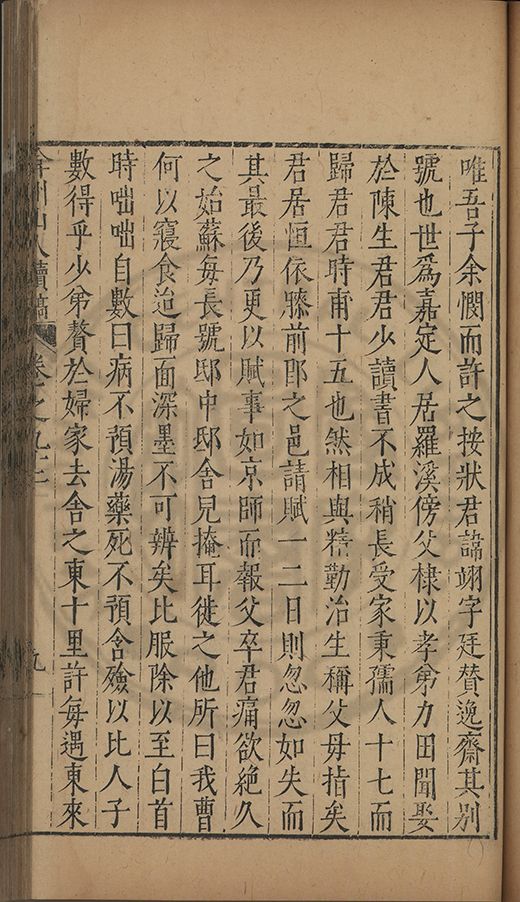 唯吾子余憫而許之按狀君諱翊字廷贊逸齋其别
號也世爲嘉定人居羅溪傍父棣以孝弟力田聞娶
於陳生君君少讀書不成稍長受家秉孺人十七而
歸君君時甫十五也然相與精勤治生稱父毋指矣
君居恒依膝前卽之邑請賦一二日則忽忽如失而
其最後乃更以賦事如京師而報父卒君痛欲絶久
之始蘇每長號邸中邸舍見掩耳徙之他所曰我曹
何以寢食迨歸面深墨不可辨矣比服除以至白首
時咄咄自數曰病不預湯藥死不預含殮以比人子
數得乎少弟贅於婦家去舍之東十里許每遇東來
弇州山人續稿 卷之九十三 九